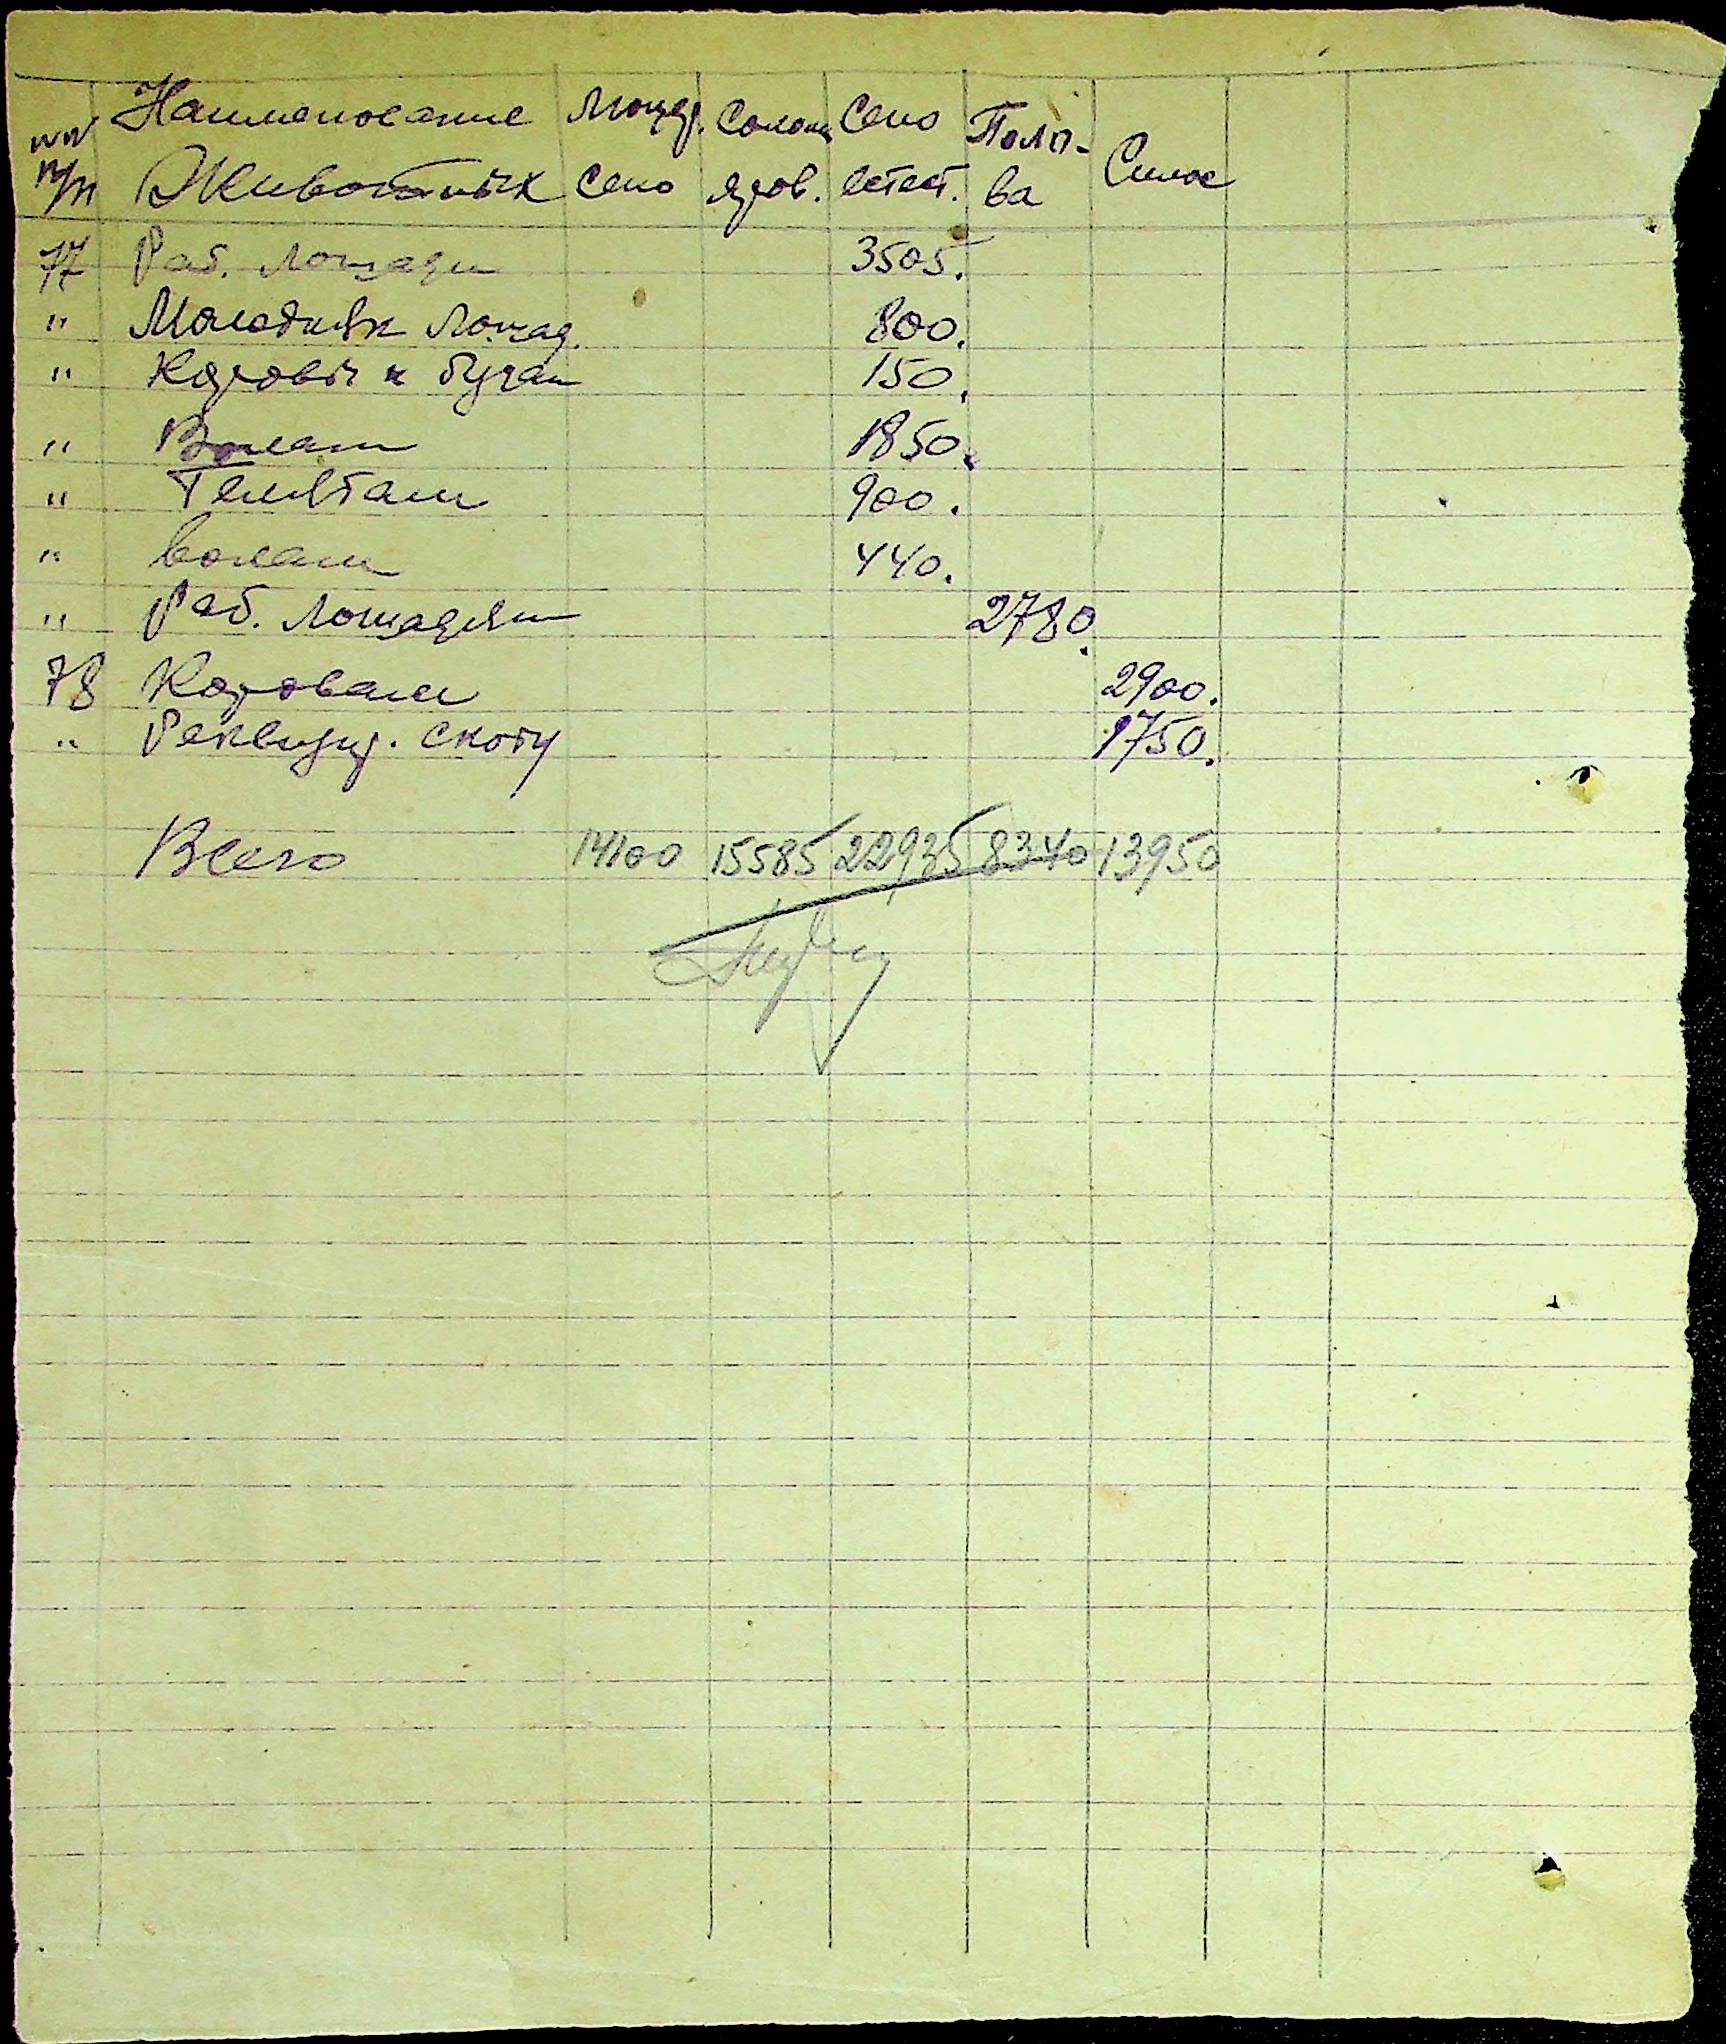 №№ Наименование Люцер. Солом Сено Поло-
п/п Животных сено яров. естест. ва Силос
77 Раб. Лошади 3505.
" Молодняк Лошад. 800.
" Коровы и бугаи 150.
" Волам 1850.
" Телятам 900.
" волам 440.
" Раб. Лошадям 2780.
78 Коровам 2900.
" Реквизир. скоту 1750.
Всего 14100 15585 22935 8340 13950